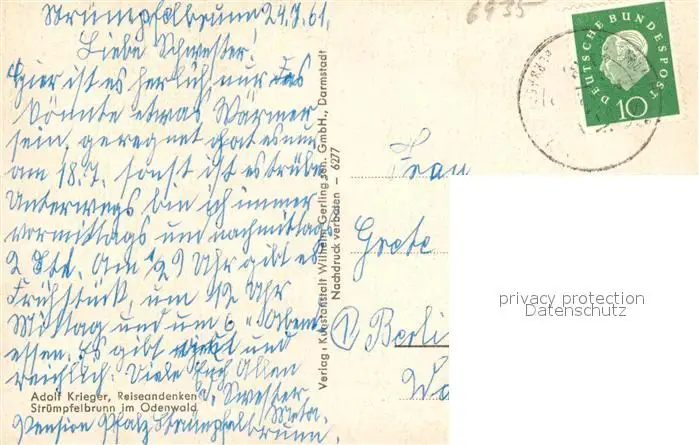 Strümpfelbrunn 24.7.61.
Liebe Schwester!
Hier ist es herlich, nur das
könnte etwas Wärmer
sein, geregnet hat es nur
am 18.7. sonst ist es trübe
Unterwegs bin ich immer
vormittags und nachmittags
2 Std. Am 9 Uhr gibt es
Frühstück, um 12 Uhr
Mittag und um 6 " Abend
essen. Es gibt und
reichlich. Viele Euch Allen
d. Swester
Meta.
Pension Pfalz Strümpfel
brunn.
Adolf Krieger, Reiseandenken
Strümpfelbrunn im Odenwald
Verlag: Kunstanstalt Wilhelm Gerling sen. GmbH., Darmstadt
Nachdruck verboten — 6277
6935
DEUTSCHE BUNDESPOST
10
Frau
Grete
1 Berli
privacy protection
Datenschutz